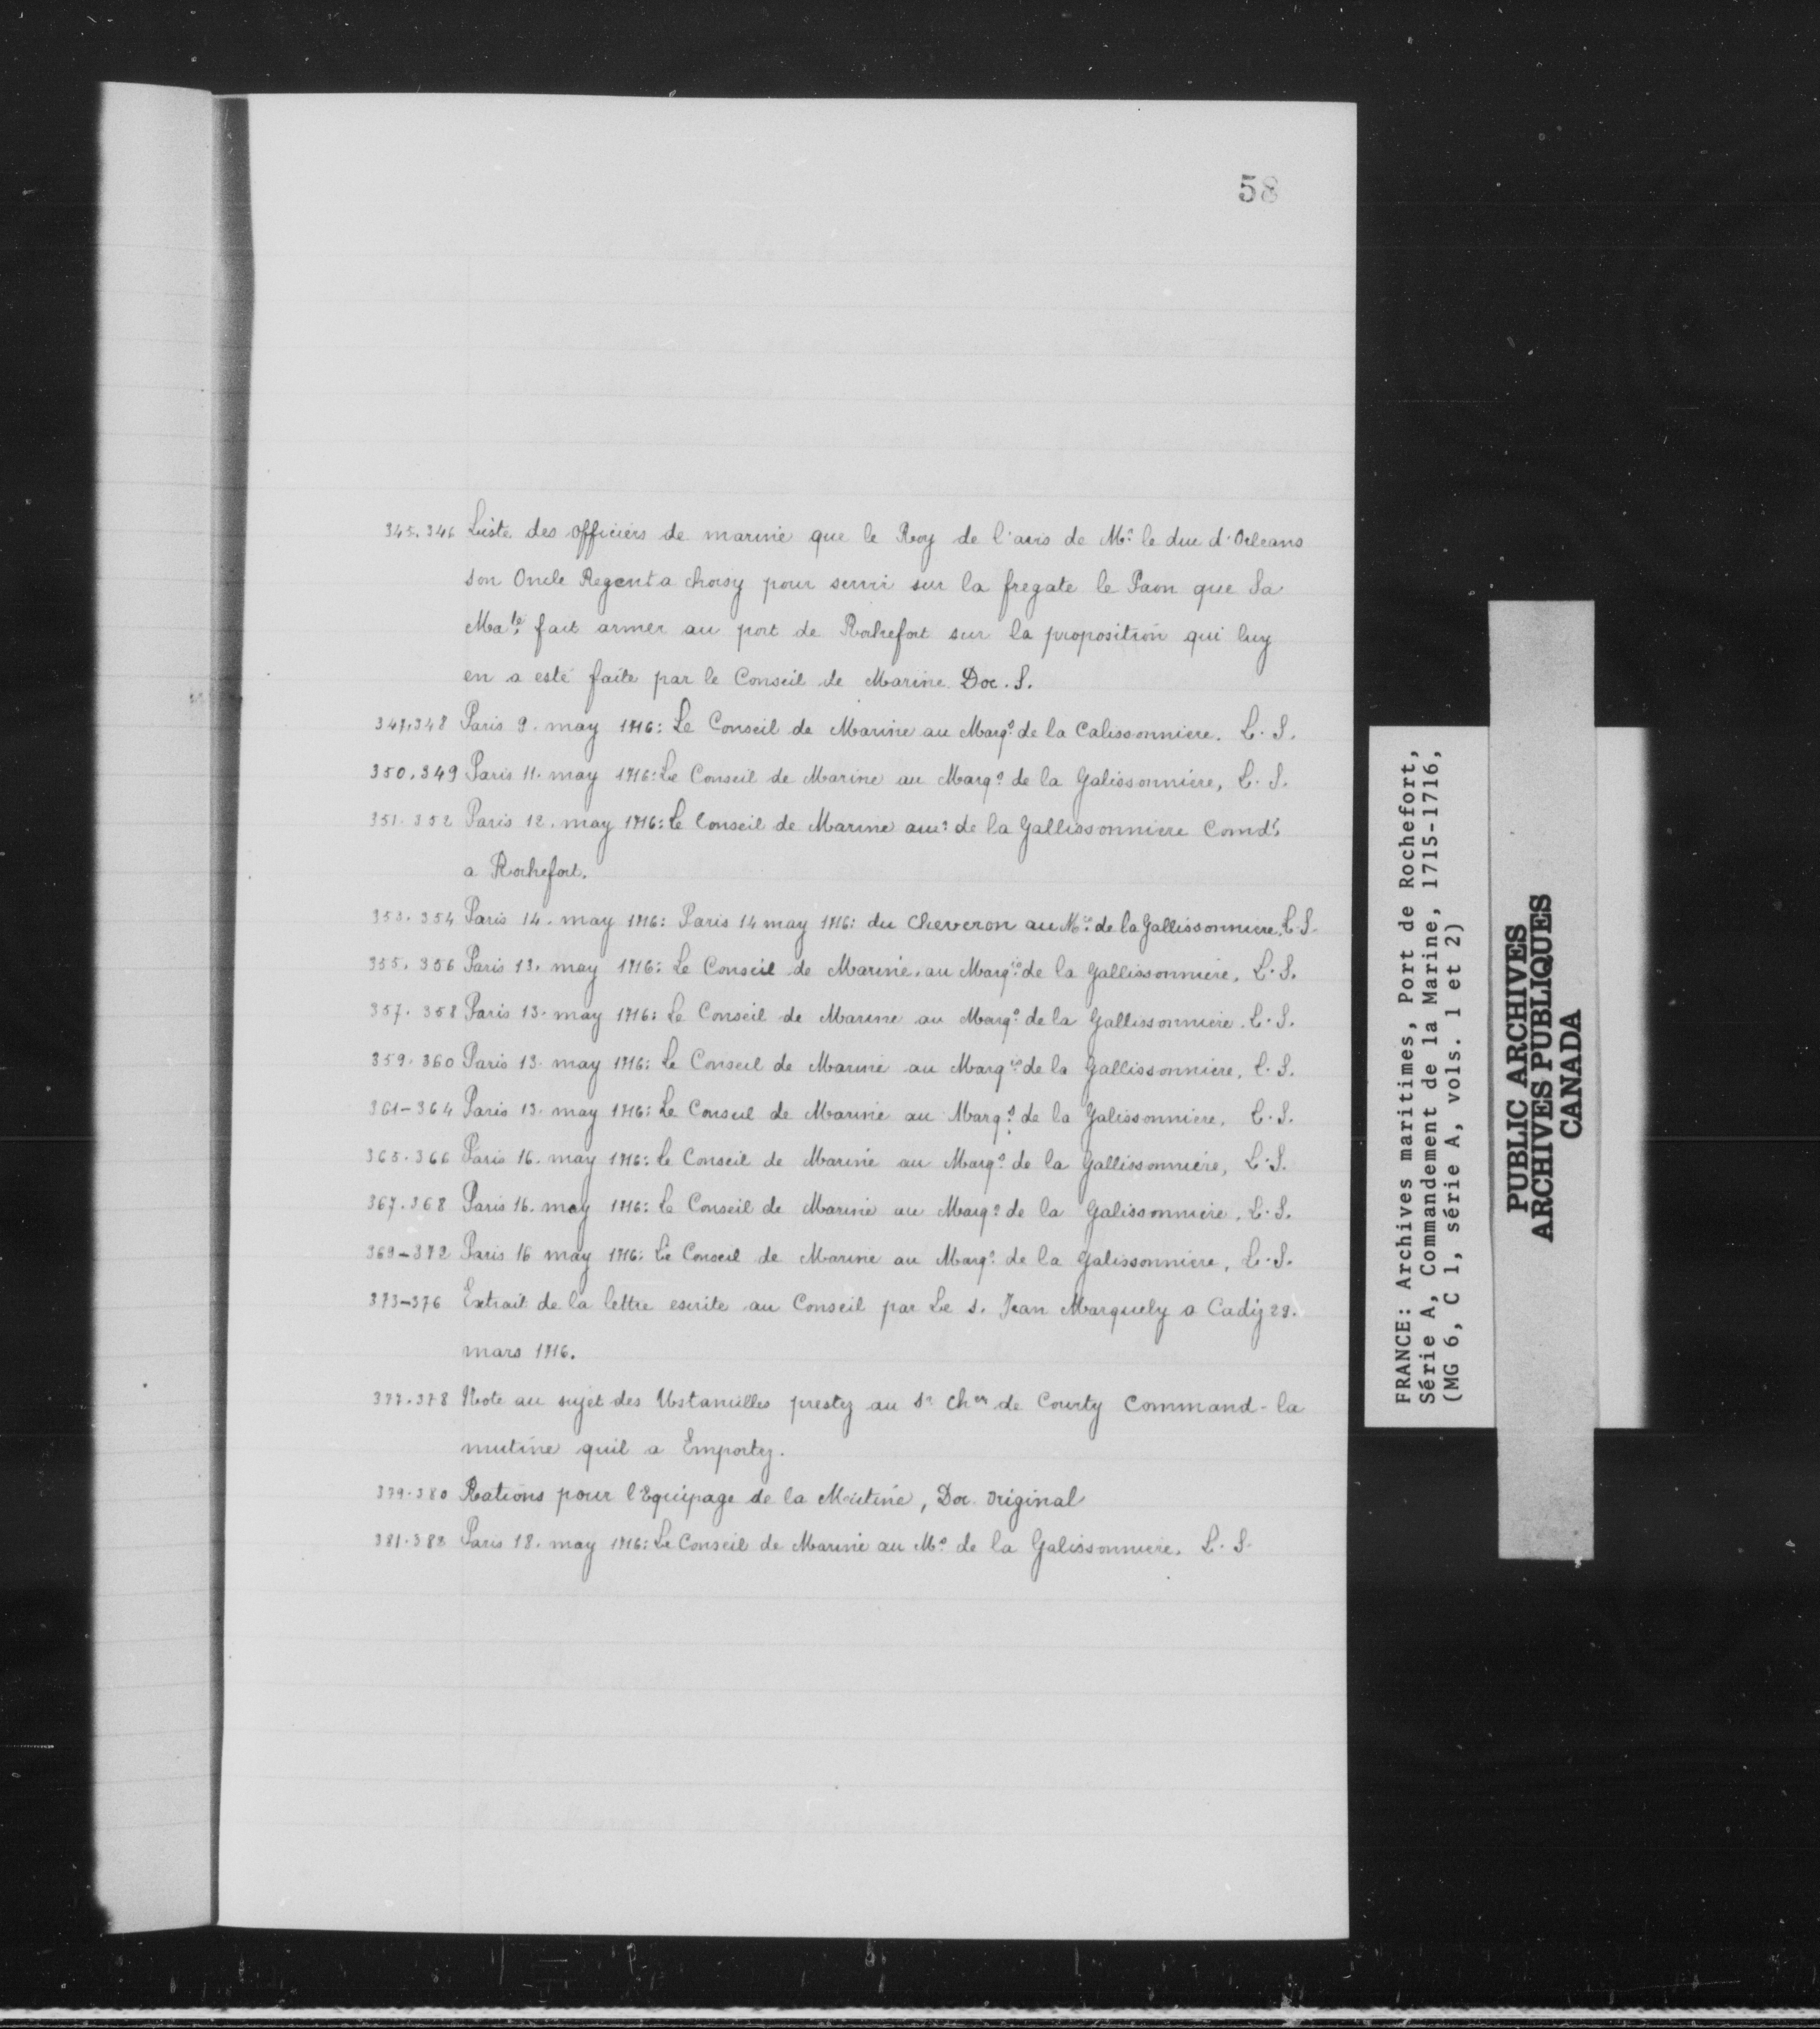 58
345.346 Liste des officiers de marine que le Roy de l'avis de Mr. le duc d'Orleans
son Oncle Regent a choisy pour servir sur la fregate le Paon que Sa
Mate. fait armer au port de Rochefort sur la proposition qui luy
en a esté faite par le Conseil de Marine. Doc. S.
347.348 Paris 9. may 1716: Le Conseil de Marine au Marqs. de la Calissonniere. L. S.
350.349 Paris 11. may 1716: Le Conseil de Marine au Marqs. de la Galissonniere, L. S.
351.352 Paris 12. may 1716: Le Conseil de Marine au de la Gallissonniere Comdt.
a Rochefort.
353.354 Paris 14. may 1716: Paris 14 may 1716: du Cheveron au Mis. de la Gallissonniere. L.S.
355.356 Paris 13. may 1716: Le Conseil de Marine. au Marqis. de la Gallissonniere. L. S.
357.358 Paris 13. may 1716: Le Conseil de Marine au Marqs. de la Gallissonniere. L. S.
359.360 Paris 13. may 1716: Le Conseil de Marine au Marqis. de la Gallissonniere. L. S.
361-364 Paris 13. may 1716: Le Conseil de Marine au Marqs. de la Galissonniere. L. S.
365.366 Paris 16. may 1716: Le Conseil de Marine au Marqs. de la Gallissonniere, L. S.
367.368 Paris 16. may 1716: Le Conseil de Marine au Marqs. de la Galissonniere. L. S.
369-372 Paris 16 may 1716: Le Conseil de Marine au Marqs. de la Galissonniere, L. S.
373-376 Extrait de la lettre escrite au Conseil par Le s. Jean Marquely a Cadiz 29.
mars 1716.
377.378 Note au sujet des Ustancilles prestez au Sr Cher de Courty Command- la
mutine quil a Emportez.
379.380 Rations pour l'Equipage de la Mutine, Doc. original
381.382 Paris 18. may 1716: Le Conseil de Marine au Ms. de la Galissonniere. L. S.
FRANCE: Archives maritimes, Port de Rochefort,
Série A, Commandement de la Marine, 1715-1716,
(MG 6, C 1, série A, vols. 1 et 2)
PUBLIC ARCHIVES
ARCHIVES PUBLIQUES
CANADA